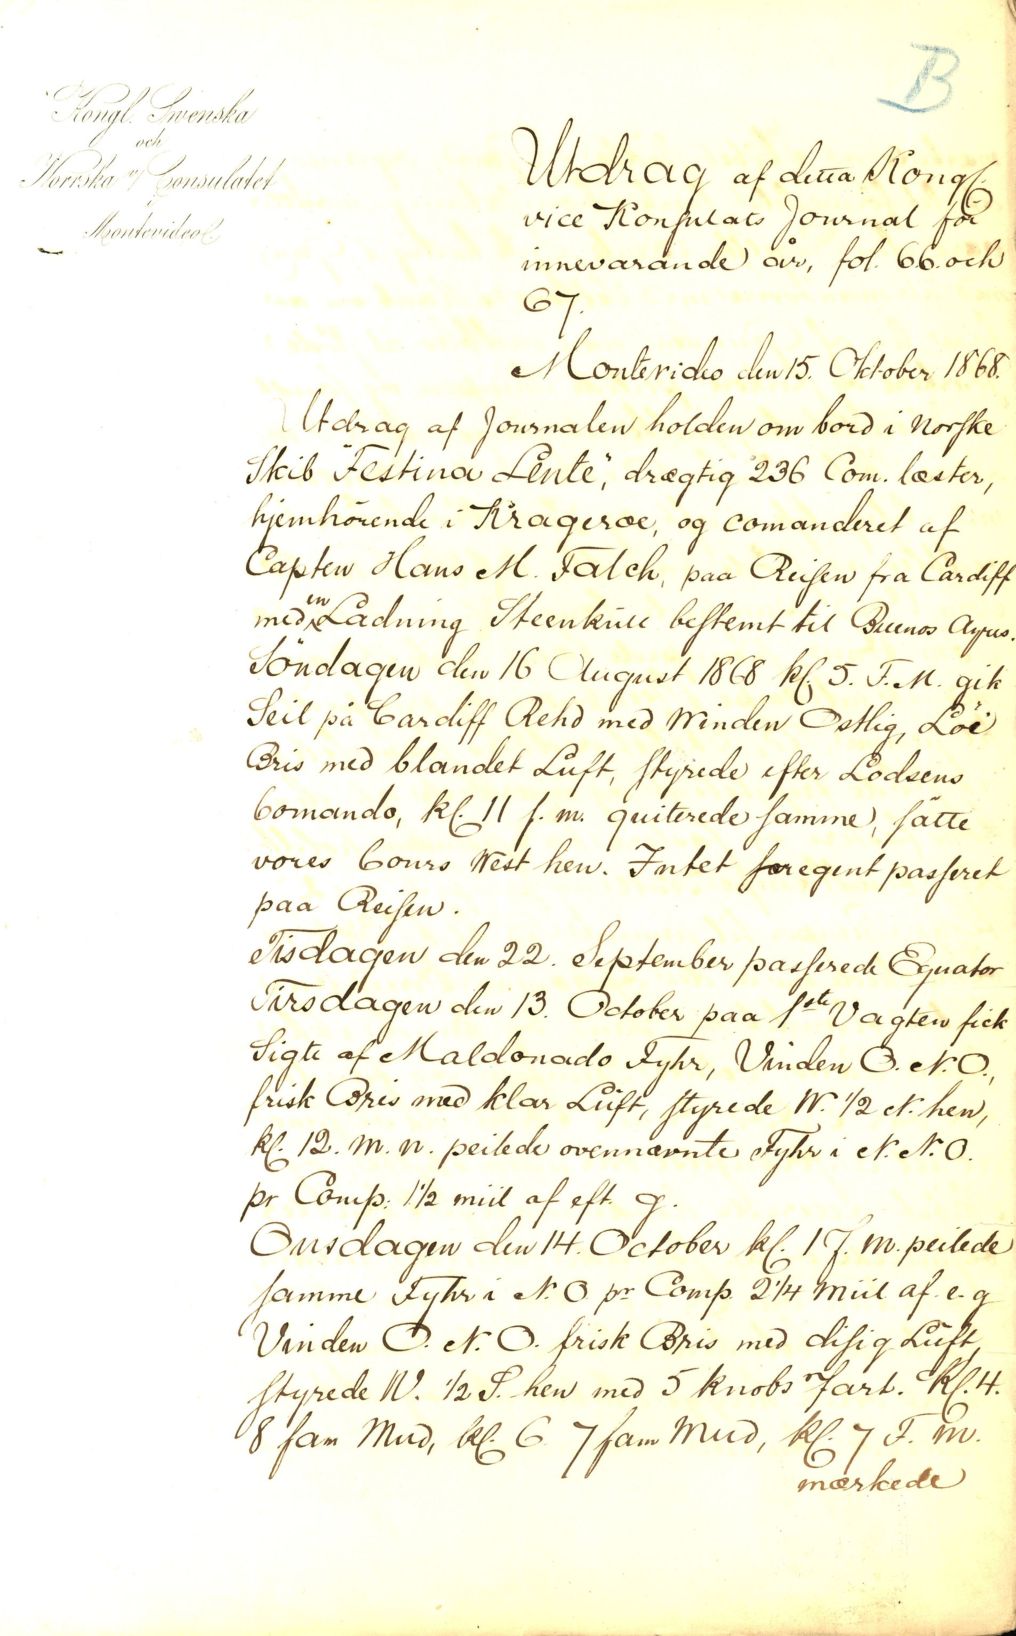 B
Kongl. Swenska
och
Norrska Consulatet
i
Montevideo
Utdrag af detta Kongl.
vice Konsulats Journal för
innevarande år, fol. 66. och
67.
Montevideo den 15. Oktober 1868.
Utdrag af Journalen holden om bord i Norske
Skib "Festina Lente", drægtig 236 Com. læster,
hjemhörende i Krageröe, og comanderet af
Capten Hans M. Falch, paa Reisen fra Cardiff
med en Ladning Steenkull bestemt til Buenos Ayres.
Söndagen den 16 August 1868 kl. 5. F. M. gik
Seil på Cardiff Rehd med Winden Ostlig, Löi
Bris med blandet Luft, styrede efter Lodsens
Comando, kl. 11 f. m. quiterede samme, sätte
vores Cours West hen. Intet foregent passeret
paa Reisen.
Tisdagen den 22. September passerede Equator
Tirsdagen den 13. October paa 1ste Vagten fick
Sigte af Maldonado Fyhr, Vinden O. N. O.,
frisk Bris med klar Luft, styrede W. 1/2 N. hen,
kl. 12. m. n. peilede ovennævnte Fyhr i N. N. O.
pr Comp: 1 1/2 miil af eft. g.
Onsdagen den 14. October kl. 1 f. m. peilede
samme Fyhr i N. O pr Comp. 2 1/4 miil af e. g
Vinden O. N. O. frisk Bris med disig Luft,
styrede W. 1/2 S. hen med 5 knobs fart. Kl. 4.
8 fam Mud, kl. 6 7 fam Mud, kl. 7 F. m.
mærkede